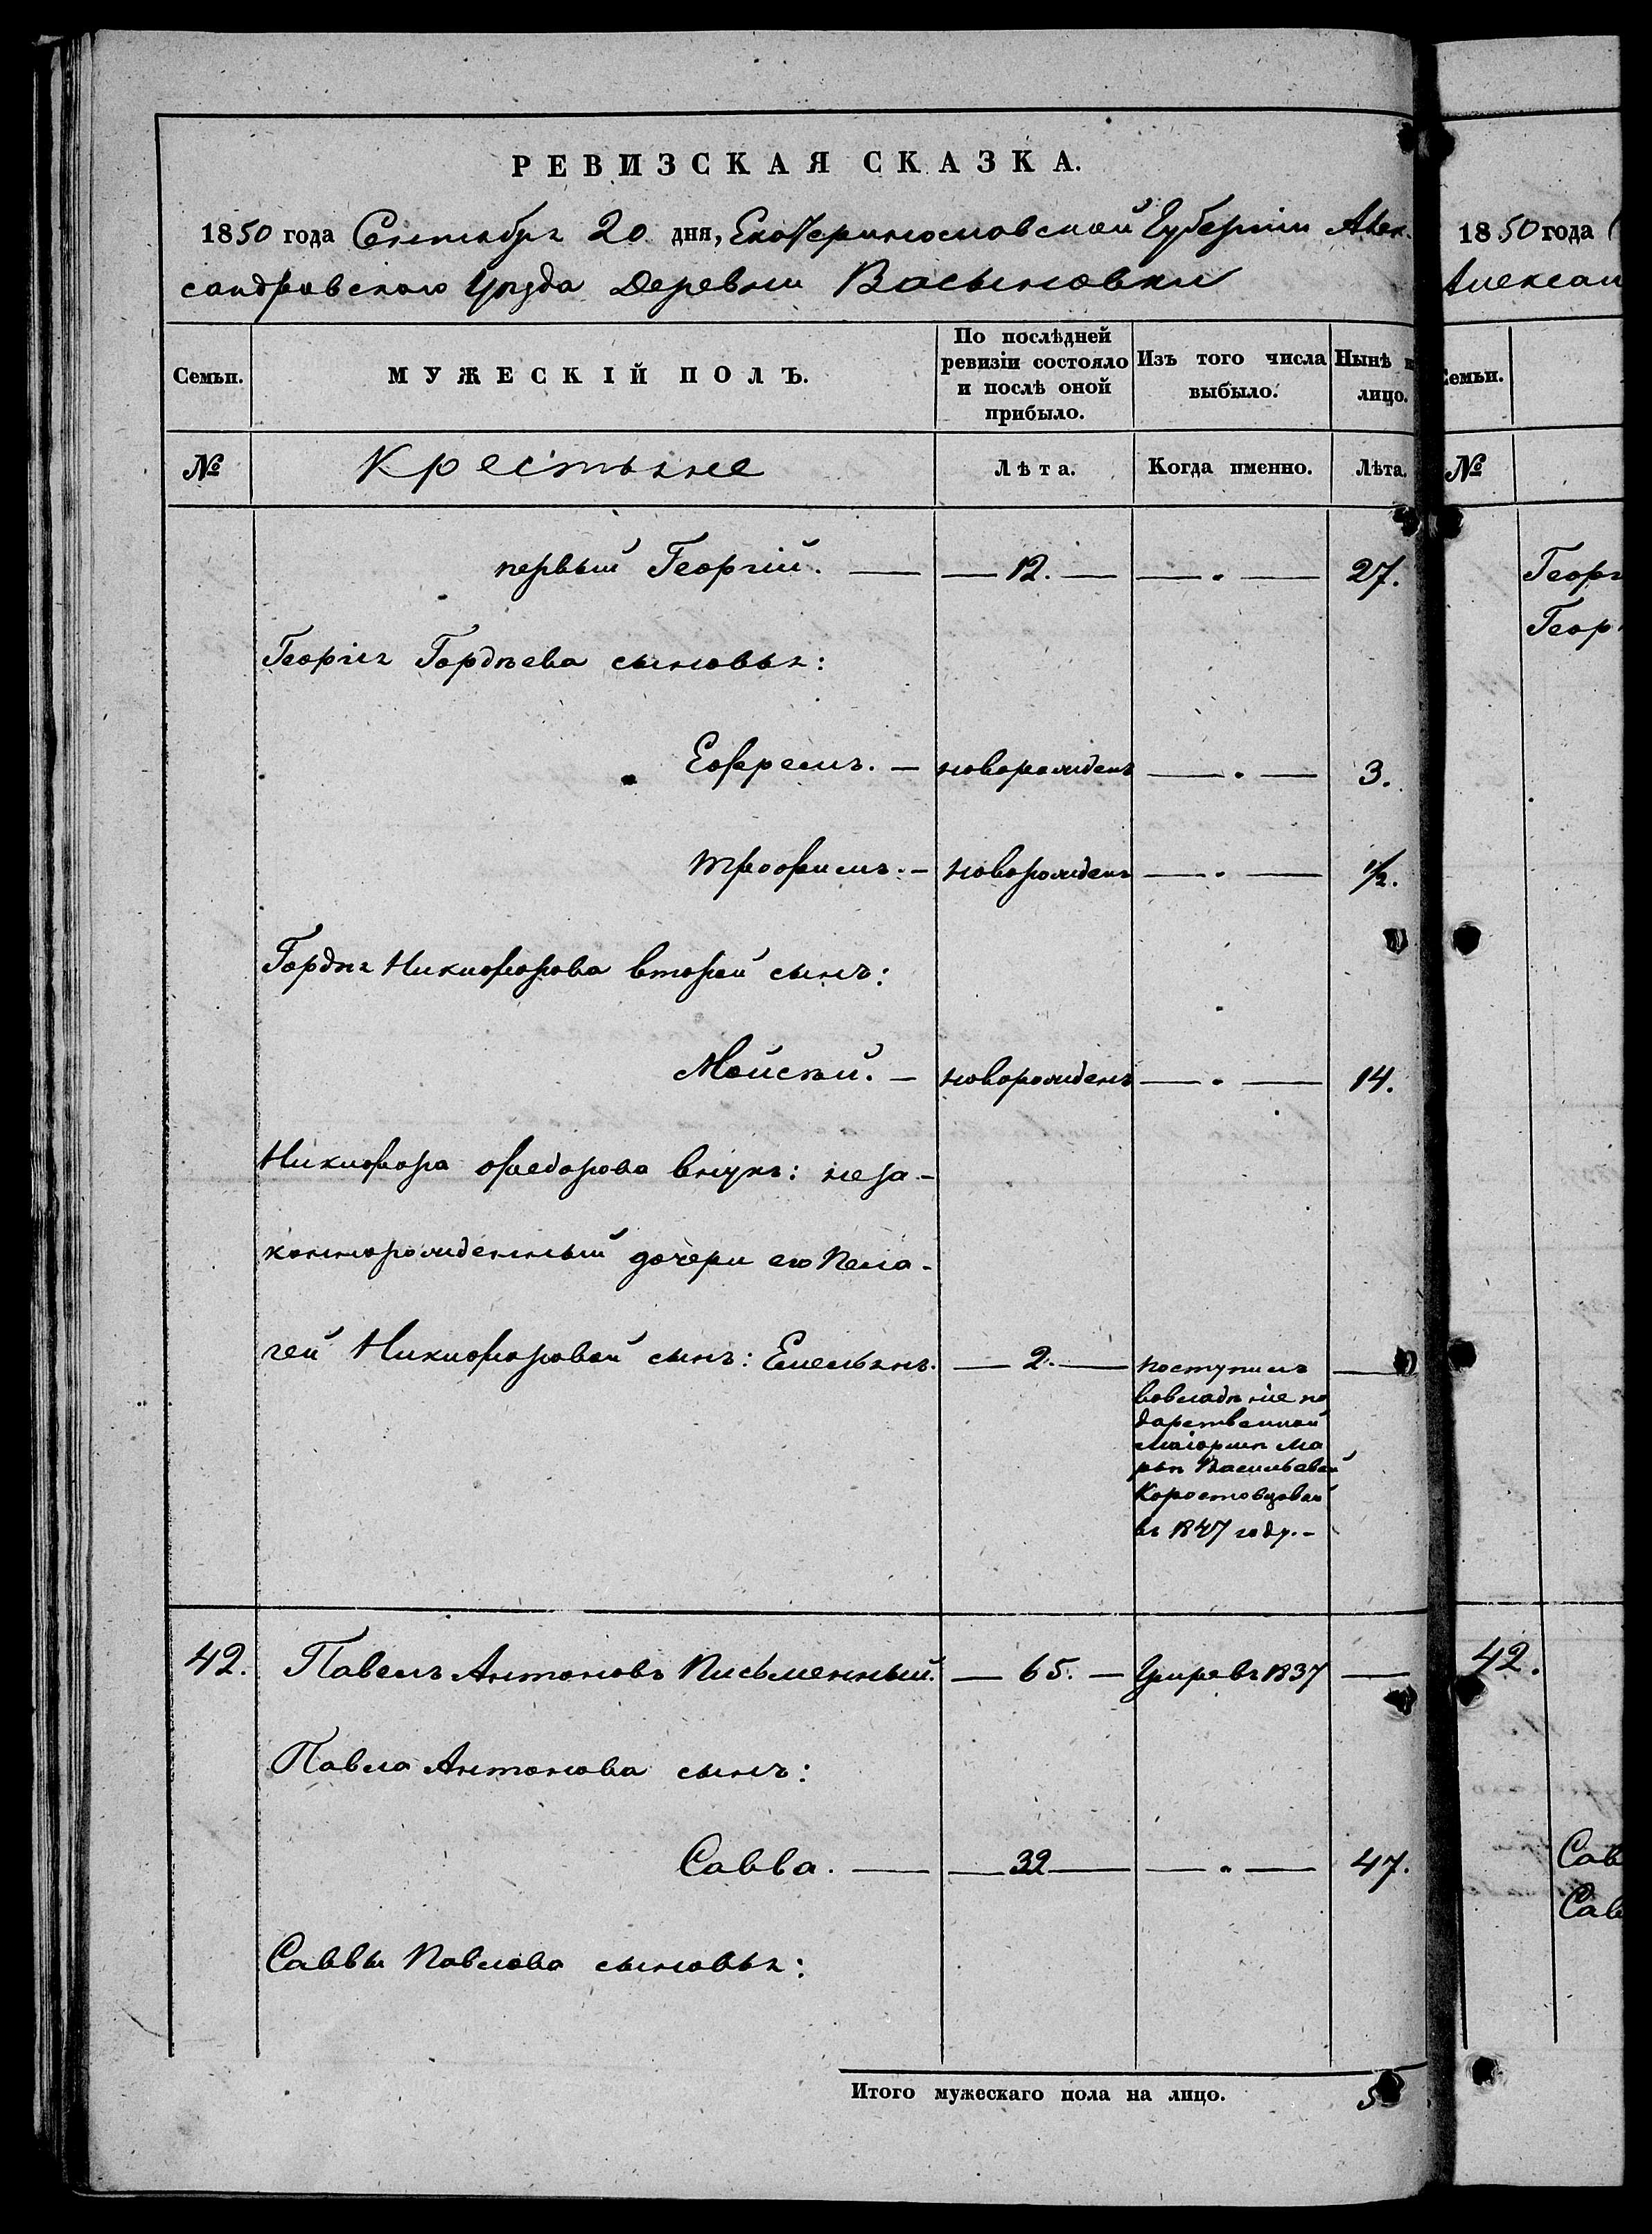 РЕВИЗСКАЯ СКАЗКА.
1850 года Сентября 20 дня, Екатеринославской Губерніи Алек-
сандровскаго Уѣзда Деревни Васьиновки
Семьи.
МУЖЕСКІЙ ПОЛЪ.
По послѣдней ревизіи состояло и послѣ оной прибыло.
Изъ того числа выбыло.
Нынѣ
лицо.
№ Крестьяне Лѣта. Когда именно. Лѣта.
первый Георгій. — — 12. — — „ — 27.
Георгія Гордѣева сыновья:
Ефремъ. — новорожденъ — „ — 3.
Трофимъ. — новорожденъ — „ — 1/2.
Гордѣя Никифорова второй сынъ:
Мойсѣй. — новорожденъ — „ — 14.
Никифора Федорова внукъ: неза-
коннорожденный дочери его Пела-
геи Никифоровой сынъ: Емельянъ. — 2. — поступилъ —
вовладѣніе по
дарственной
маіоршѣ Ма
рьѣ Васильевой
Коростовцовой
въ 1847 году. –
42. Павелъ Антоновъ Письменный. — 65. — Умре въ 1837 —
Павла Антонова сынъ:
Савва. — — 32 — — „ — 47.
Саввы Павлова сыновья:
Итого мужескаго пола на лицо. 5
1850 года
Алексан
Семьи.
№
Георг
Геор
42.
Сав
Сав